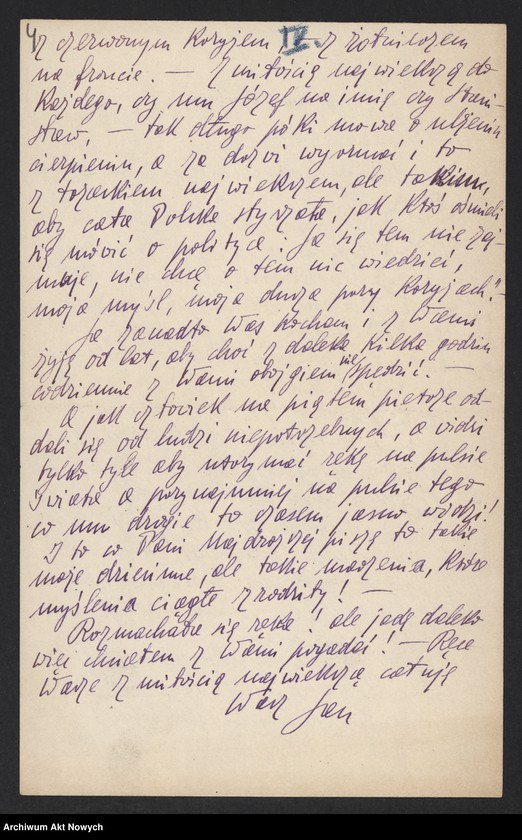 4
IV.
z czerwonym Krzyżem, – z żołnierzem
na froncie. – Z miłością największą do
każdego, czy mu Józef na imię czy Stani-
sław, – tak długo póki mowa o ulżeniu
cierpieniu, a za drzwi wyprosić i to
z trzaskiem największem, ale takim,
aby cała Polska słyszała, jak ktoś ośmieli
się mówić o polityce. Ja się tem nie zaj-
muję, nie chcę o tem nic wiedzieć,
moja myśl, moja dusza przy Krzyżach." –
Ja zanadto Was kocham i z Wami
żyję od lat, aby choć z daleka kilka godzin
codziennie z Wami obojgiem nie spędzić. –
A jak człowiek na piątem piętrze od-
dali się od ludzi niepotrzebnych, a widzi
tylko tyle aby utrzymać rękę na pulsie
świata a przynajmniej na pulsie tego
co mu drogie to czasem jasno widzi!
I to co Pani Najdroższej piszę to takie
moje dziecinne, ale takie marzenia, które
myślenia ciągłe zrodziły! –
Rozmachała się ręka! ale jadę daleko
więc chciałem z Wami pogadać! – Ręce
Wasze z miłością największą całuję
Wasz Jan
Archiwum Akt Nowych